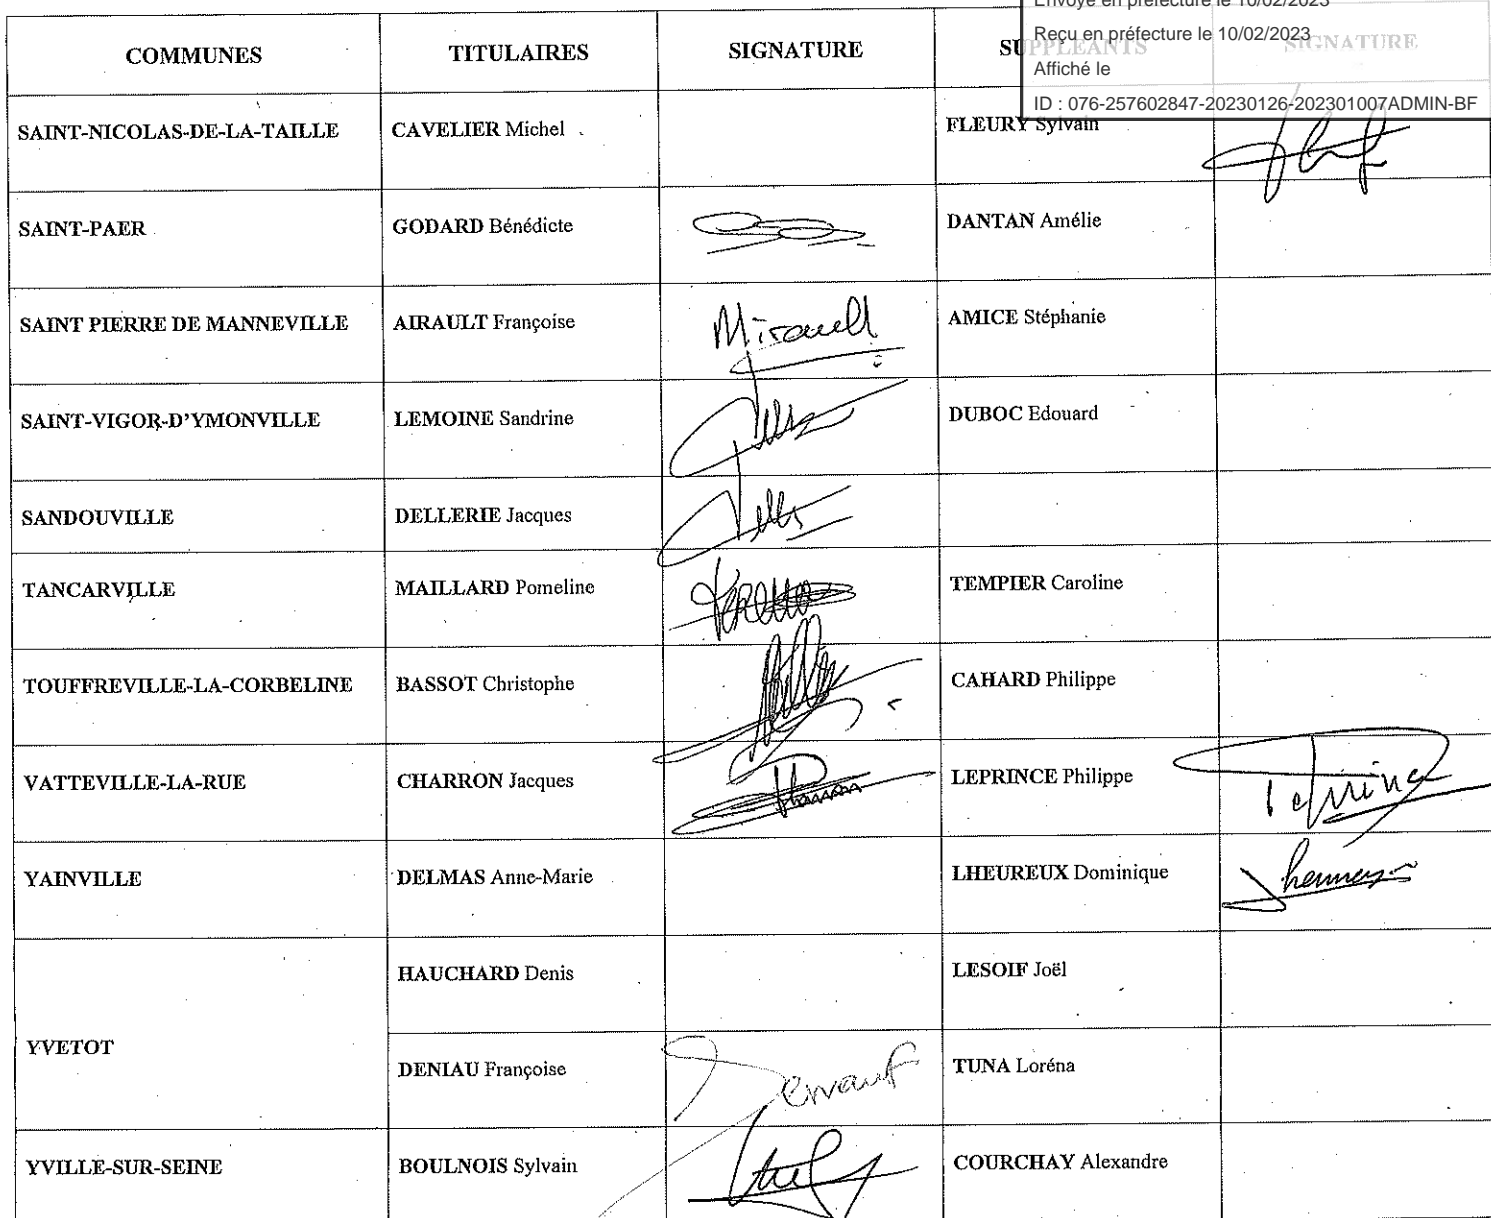 Envoyé en préfecture le 10/02/2023
Reçu en préfecture le 10/02/2023
Affiché le
ID : 076-257602847-20230126-202301007ADMIN-BF
COMMUNES TITULAIRES SIGNATURE SUPPLEANTS SIGNATURE
SAINT-NICOLAS-DE-LA-TAILLE CAVELIER Michel FLEURY Sylvain
SAINT-PAER GODARD Bénédicte DANTAN Amélie
SAINT PIERRE DE MANNEVILLE AIRAULT Françoise AMICE Stéphanie
SAINT-VIGOR-D'YMONVILLE LEMOINE Sandrine DUBOC Edouard
SANDOUVILLE DELLERIE Jacques
TANCARVILLE MAILLARD Pomeline TEMPIER Caroline
TOUFFREVILLE-LA-CORBELINE BASSOT Christophe CAHARD Philippe
VATTEVILLE-LA-RUE CHARRON Jacques LEPRINCE Philippe
YAINVILLE DELMAS Anne-Marie LHEUREUX Dominique
HAUCHARD Denis LESOIF Joël
YVETOT
DENIAU Françoise TUNA Loréna
YVILLE-SUR-SEINE BOULNOIS Sylvain COURCHAY Alexandre